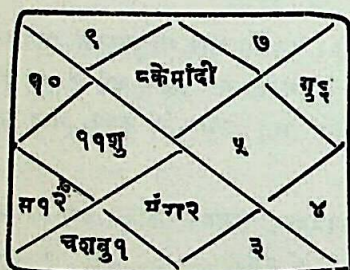 ९ ७
१० ८केमांदी गु६
११शु ५
स१२ मंरा२ ४
चशबु१ ३